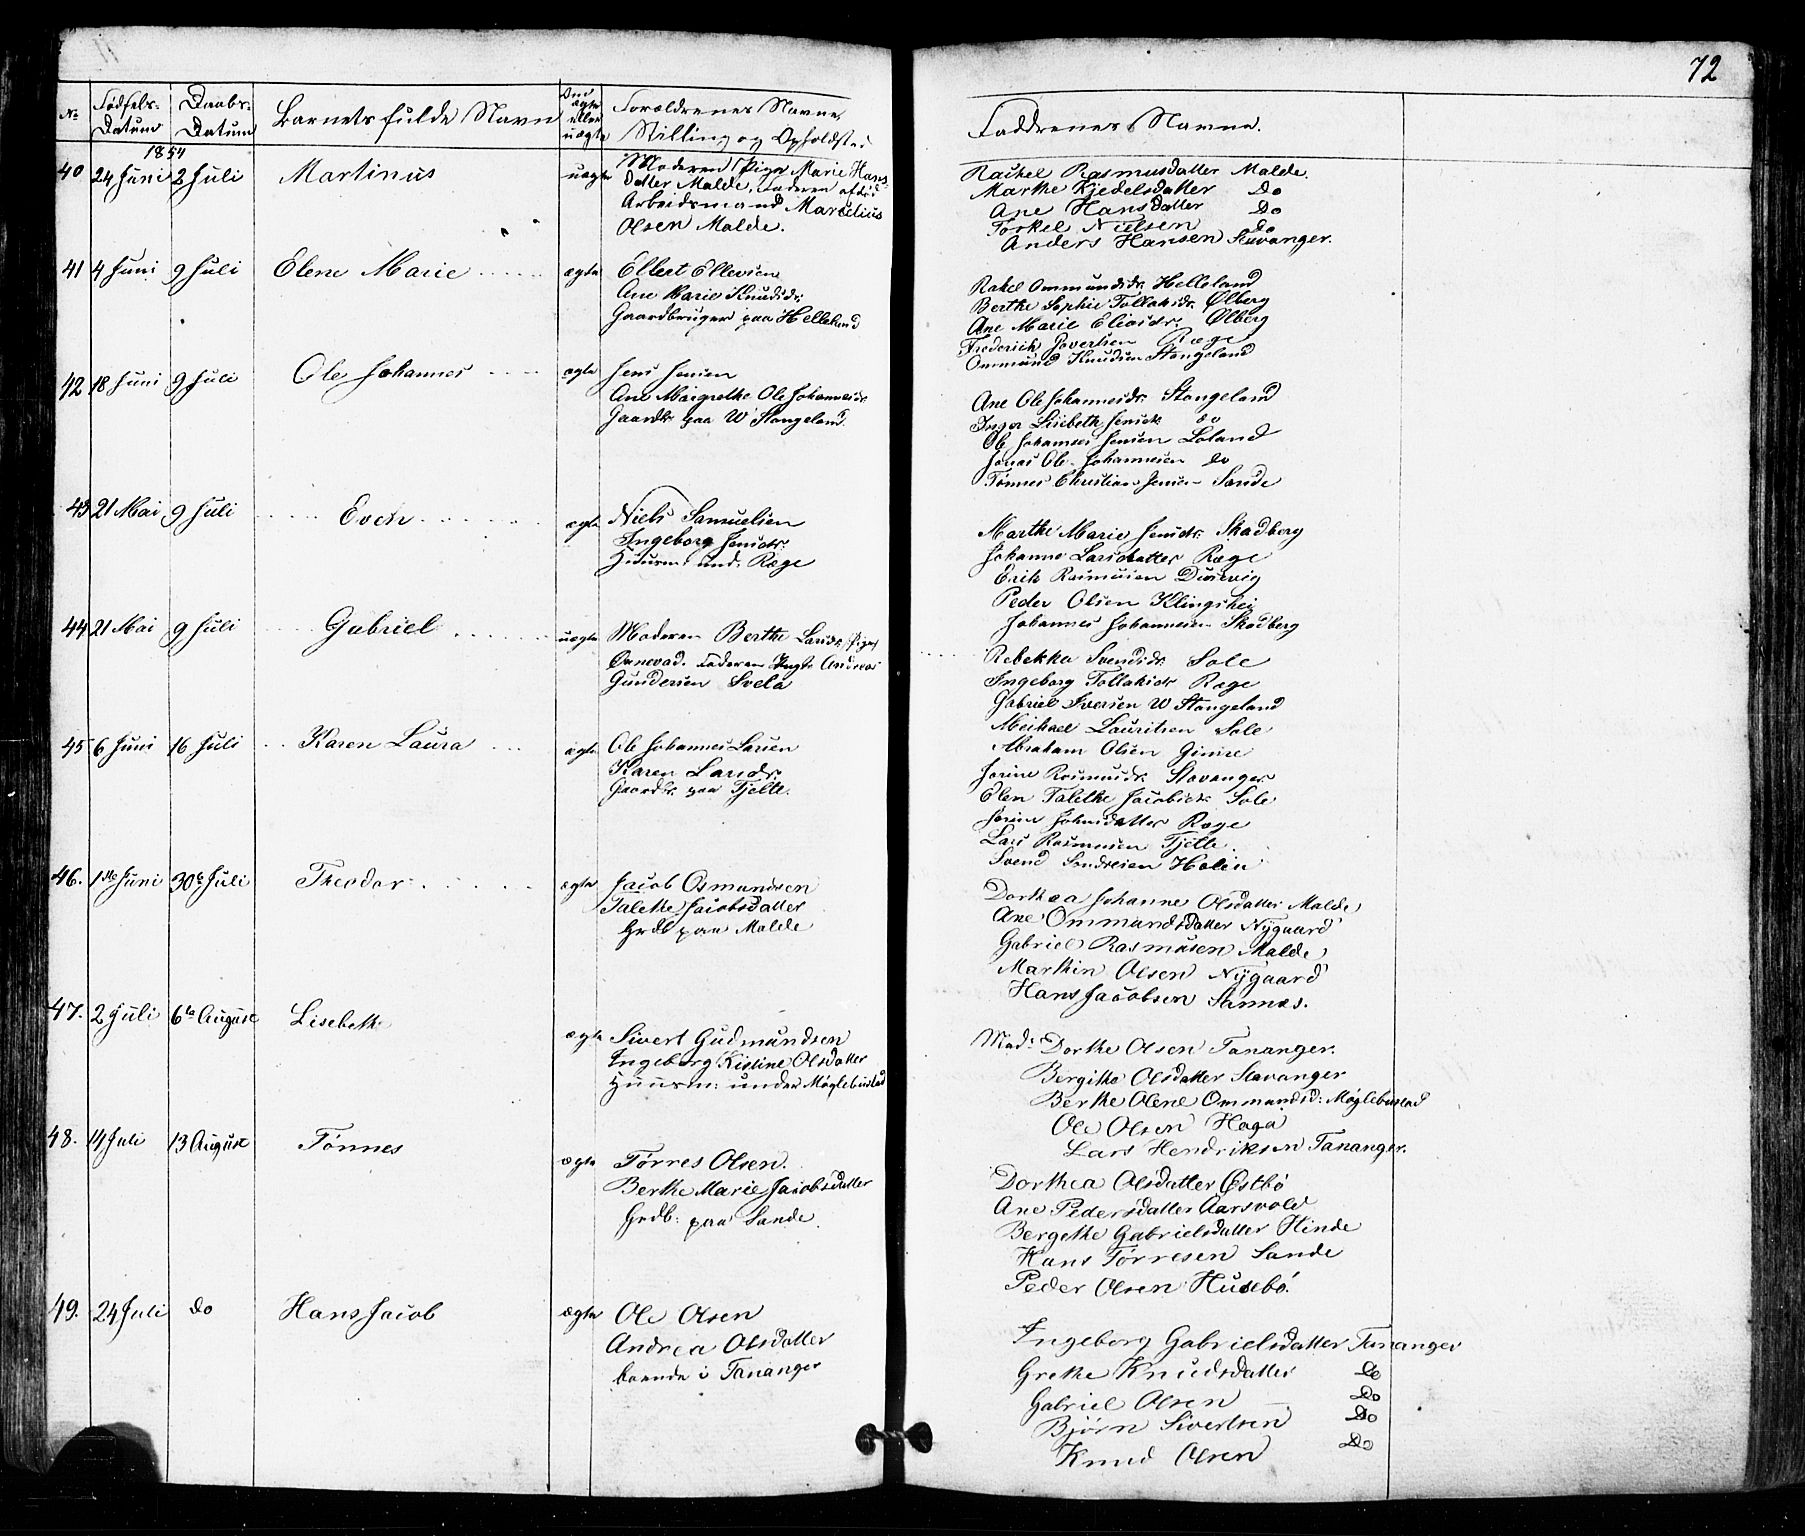 72
No
Fødsels-
Datum
Daabs-
Datum
Barnets fulde Navn
Om
ægte
eller
uægte
Forældrenes Navne,
Stilling og Opholdsted
Faddrenes Navne.
1854
40 24 Juni 2 Juli Martinus uægte Moderen Pige Marie Hans-
datter Malde, Faderen afdød
Arbeidsmand Marcelius
Olsen Malde.
Rachel Rasmusdatter Malde.
Marthe Kjedelsdatter Do
Ane Hansdatter Do
Torkel Nielsen Do
Anders Hansen Stavanger.
41 4 Juni 9 Juli Elene Marie ægte Elbert Ellevsen
Ane Marie Knudsdr.
Gaardbruger paa Helleland
Rakel Ommundsdr. Helleland
Berthe Sophie Tollaksdr. Ølberg
Ane Marie Eliasdr. Ølberg
Frederick Sivertsen Ræge
Ommund Knudsen Stangeland
42 18 Juni 9 Juli Ole Johannes ægte Jens Jensen
Ane Margrethe Ole Johannesdr.
Gaardbr. paa W Stangeland.
Ane Ole Johannesdr. Stangeland
Inger Lisebeth Jensdr. do
Ole Johannes Jensen Loland
Jonas Ole Johannesen do
Tønnes Christian Jensen Sande
43 21 Mai 9 Juli Even ægte Niels Samuelsen
Ingeborg Jensdr.
Huusm. und. Ræge
Marthe Marie Jensdr. Skadberg
Johanne Larsdatter Ræge
Erik Rasmusen Dusevig
Peder Olsen Klingshei
Johannes Johannesen Skadberg
44 21 Mai 9 Juli Gabriel uægte Moderen Berthe Larsdr. Pige
Ornevad. Faderen Ungk. Andreas
Gundersen Svela
Rebekka Svendsdr. Sole
Ingeborg Tollaksdr. Ræge
Gabriel Iversen W Stangeland
Meikael Lauritsen Sole
Abraham Olsen Gimre
45 6 Juni 16 Juli Karen Laura ægte Ole Johannes Larsen
Karen Larsdr.
Gaardbr. paa Tjelte.
Jorine Rasmusdr. Stavanger
Elen Talethe Jacobsdr. Sole
Jorine Johnsdatter Ræge
Lars Rasmusen Tjelte.
Svend Sondresen
46. 1ste Juni 30te Juli Theodor ægte Jacob Osmundsen
Talethe Jacobsdatter
Grdb paa Malde
Dorthea Johanne Olsdatter Malde
Ane Ommundsdatter Nygaard
Gabriel Rasmusen Malde
Marthin Olsen Nygaard
Hans Jacobsen Sannes.
47. 2 Juli 6te August Lisebeth ægte Sivert Gudmundsen
Ingeborg Kistine Olsdatter
Huusm: under Møglebustad
Mad: Dorthe Olsen Tananger.
Bergithe Olsdatter Stavanger
Berthe Olene Ommundsd: Møglebustad
Ole Olsen Haga
Lars Hendriksen Tananger.
48. 14 Juli 13 August Tønnes ægte Tørres Olsen.
Berthe Marie Jacobsdatter
Grdb: paa Sande.
Dorthea Olsdatter Østbø
Ane Pedersdatter Aarsvold
Bergethe Gabrielsdatter Hinde
Hans Tørresen Sande
Peder Olsen Husebø.
49. 24 Juli do Hans Jacob ægte Ole Olsen
Andrea Olsdatter
boende i Tananger
Ingeborg Gabrielsdatter Tananger
Grethe Knudsdatter Do
Gabriel Olsen Do
Bjørn Sivertsen Do
Knud Olsen Do